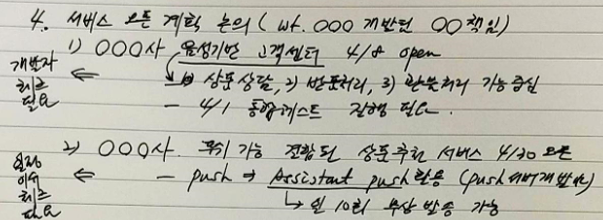 4. 서비스 오픈 계획 논의 (wt. OOO 개발팀 OO책임)
1) OOO사 음성기반 고객센터 4/8 open
개발자 체크 필요 ⇐ 1) 상품상담, 2) 반품처리, 3) 환불처리 가능 중심
- 4/1 통합테스트 진행 필요.
2) OOO사. 무기 가능 전환된 상품추천 서비스 4/30 오픈
일정 이슈 체크 필요 ⇐ - push → Assistant push 활용 (push서버개발)
↳ 월 10회 무상 발송 가능